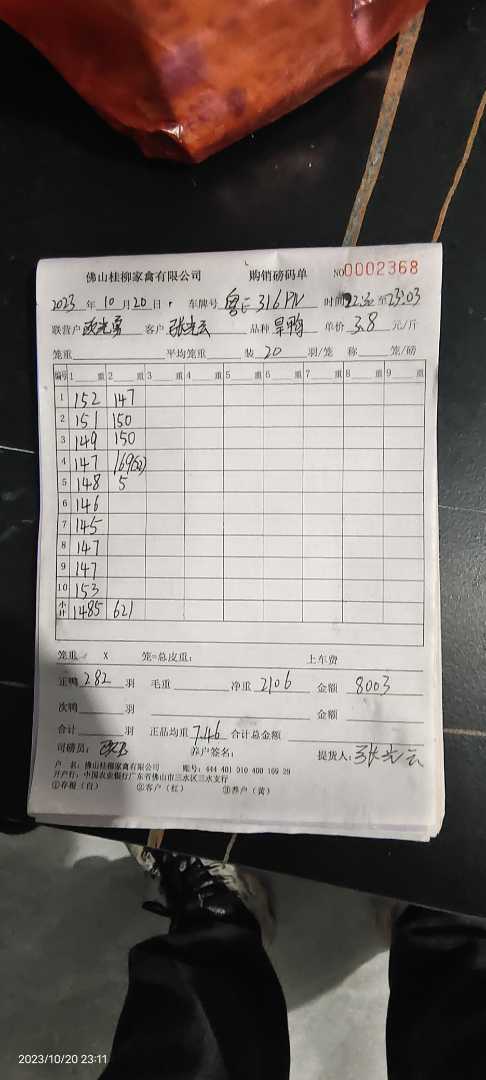 佛山桂柳家禽有限公司 购销磅码单 NO0002368
2023年10月20日 车牌号 粤E316PN 时间 至23:03
联营户 客户 张光云 品种 旱鸭 单价 3.8 元/斤
笼重 平均笼重 装 20 羽/笼 称 笼/磅
编号 1 重 2 重 3 重 4 重 5 重 6 重 7 重 8 重 9 重
1 152 147
2 151 150
3 149 150
4 147 169(52)
5 148 5
6 146
7 145
8 147
9 147
10 153
小计 1485 621
笼重 X 笼=总皮重: 上车费
正鸭 282 羽 毛重 净重 2106 金额 8003
次鸭 羽 金额
合计 羽 正品均重 7.46 合计总金额
司磅员: 养户签名: 提货人: 张光云
户 名:佛山桂柳家禽有限公司 账号:444 401 010 400 169 29
开户行:中国农业银行广东省佛山市三水区三水支行
①存根(白) ②客户(红) ③养户(黄)
2023/10/20 23:11